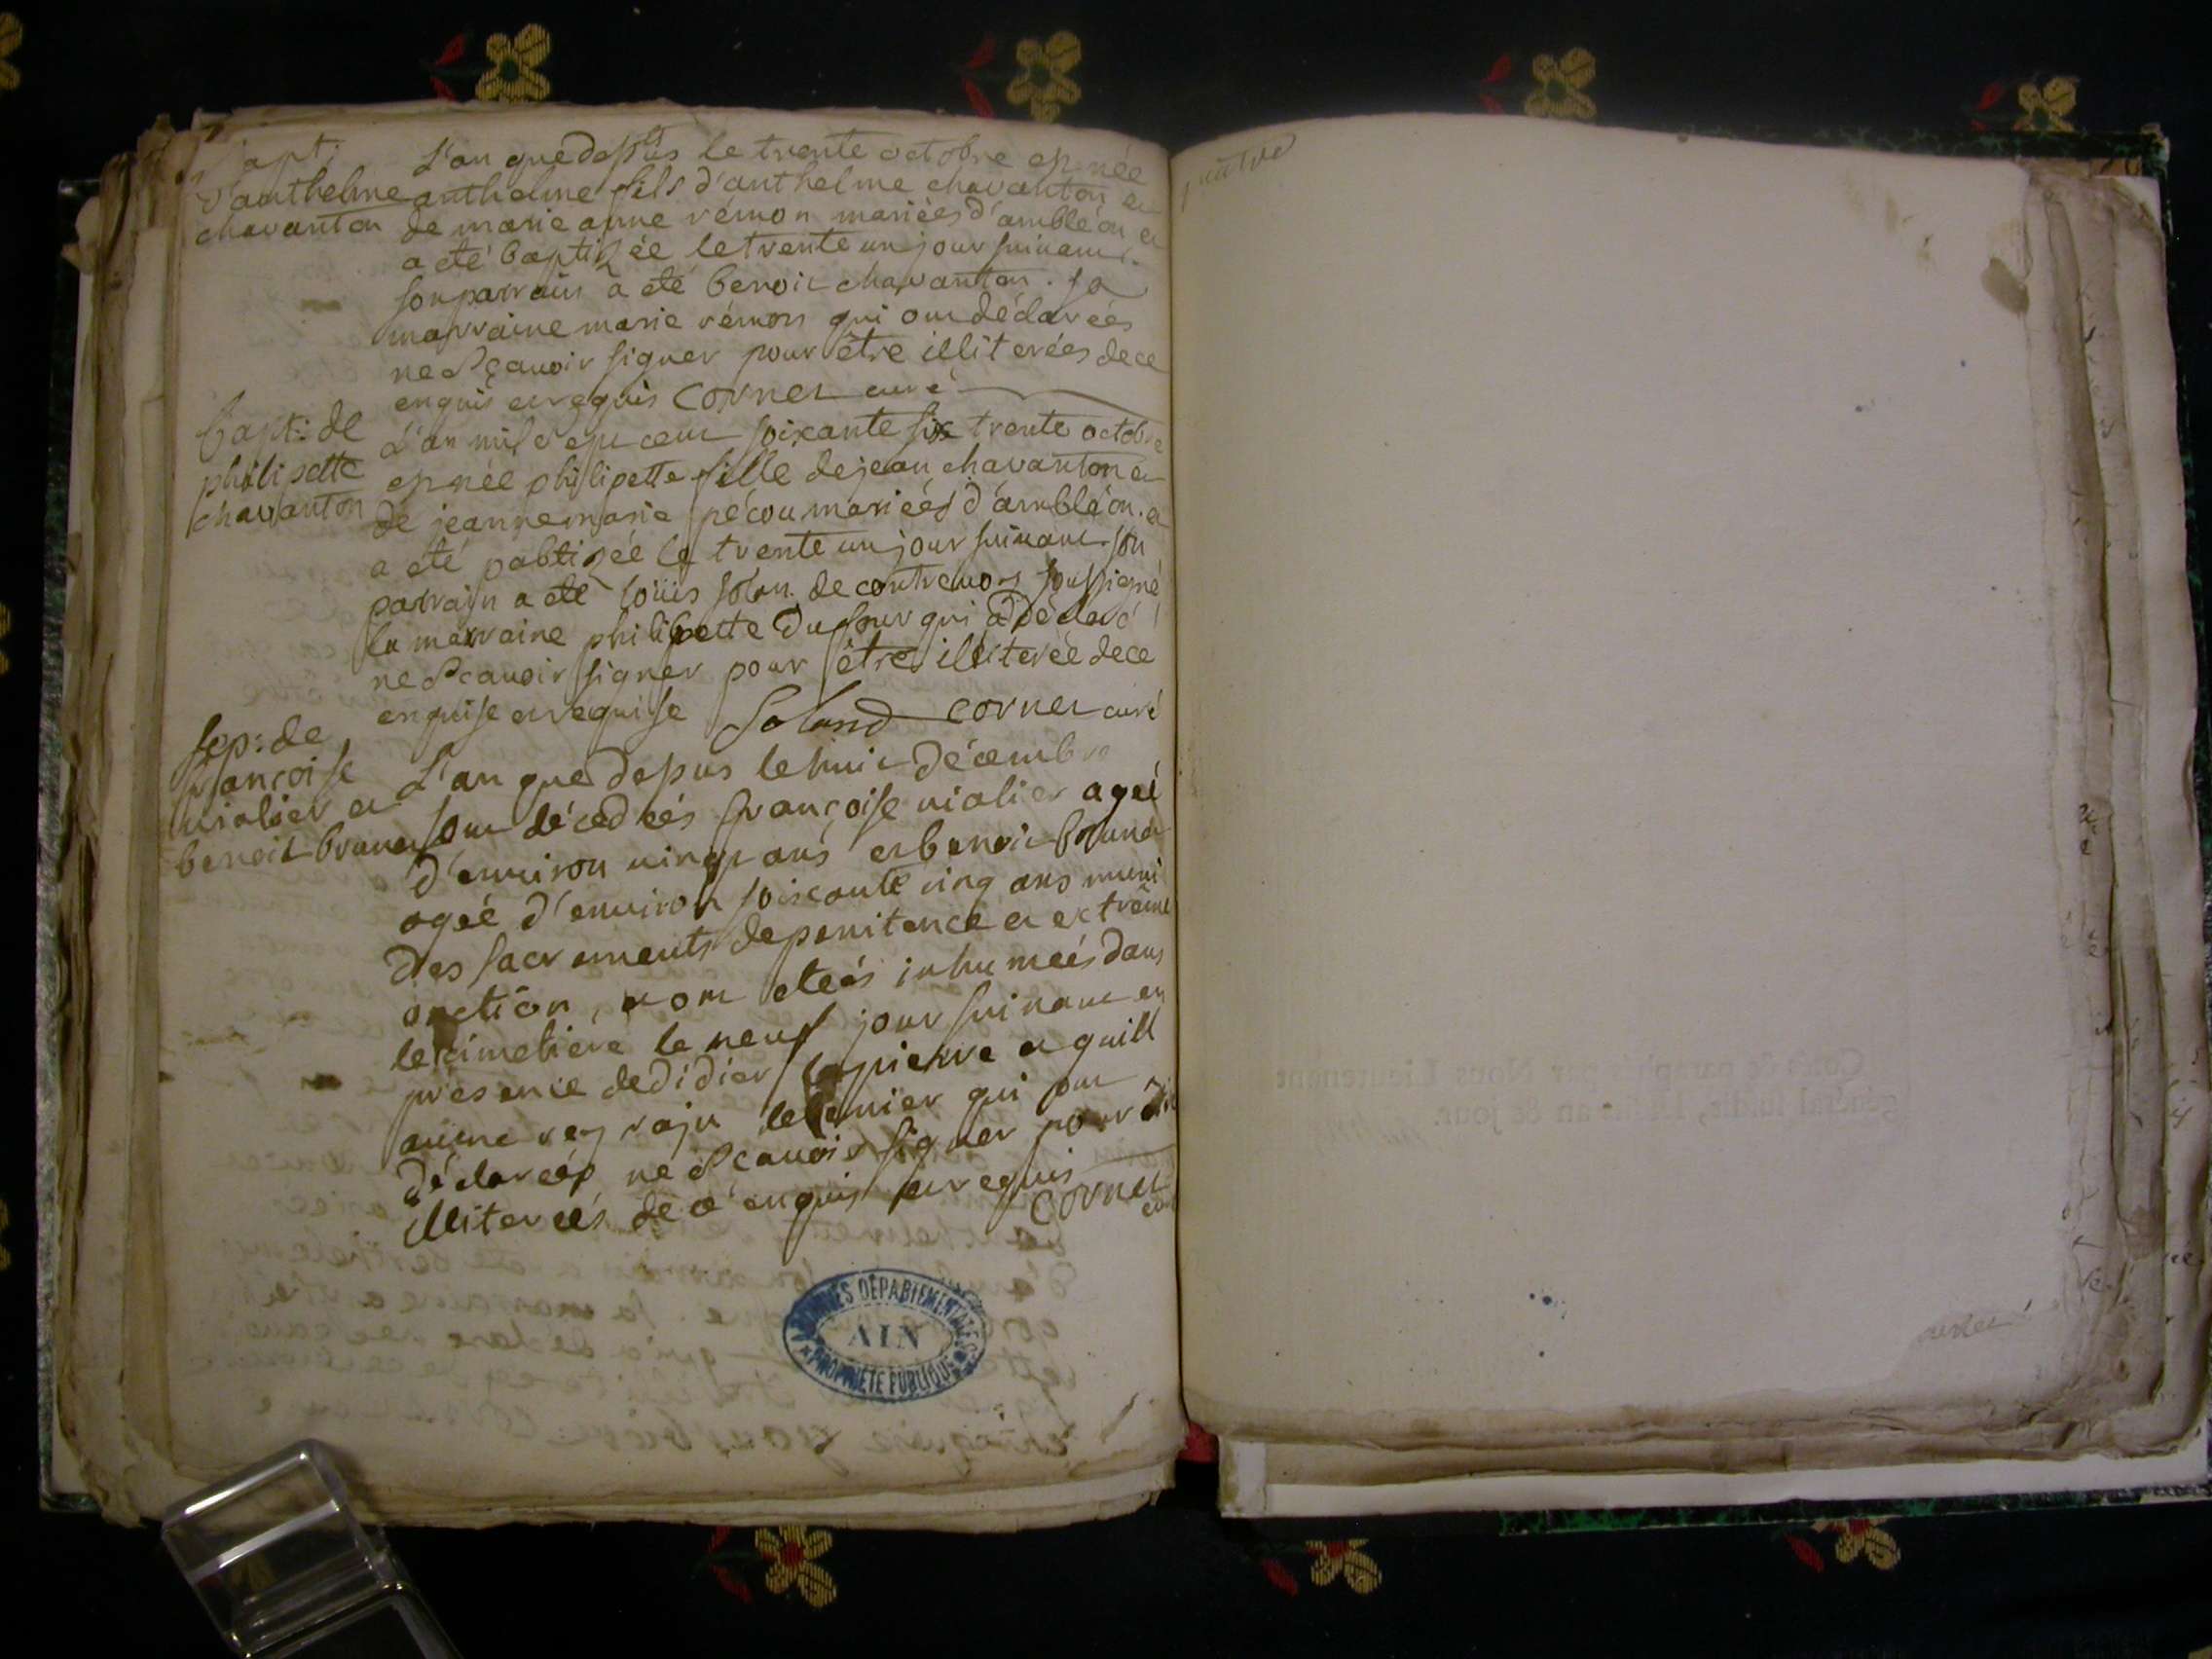 bapt:
d'anthelme
chavanton
L'an que depus le trente octobre ep née
anthelme fils d'anthelme chavanton et
de marie anne rémon mariées d'ambléon et
a été baptizée le trente un jour suivant.
son parrain a eté benoit chavanton. sa
marraine marie rémon qui ont déclarées
ne sçavoir signer pour être illiterées de ce
enquis et requis cornet curé
bapt: de
philipette
chavanton
L'an mil sept cent soixante six trente octobre
ep née philipette fille de jean chavanton et
de jeanne marie pécou mariées d'ambléon. et
a été pabtizée le trente un jour suivant. son
parrain a eté loüis solan de contrevos soussigné
la marraine philipette Dufour qui a déclaré
ne scavoir signer pour être illiterée de ce
enquise et requise Soland cornet curé
sep: de
francoise
vialier et
benoit brunet
L'an que depus le huit décembre
sont décedées françoise vialier ageé
d'environ vingt ans et benoit brunet
ageé d'environ soixante cinq ans muni
des sacrements de penitence et extrême
onction, et ont eteés inhumeés dans
le cimetiere le neuf jour suivant en
presence de didier lapierre et guill
aume rey
déclareés ne scavoir signer pour être
illitereés de ce enquis et requis
cornet
curé
ARCHIVES DÉPARTEMENTALES
AIN
PROPRIÉTÉ PUBLIQUE
Coté & paraphé par Nous Lieutenant